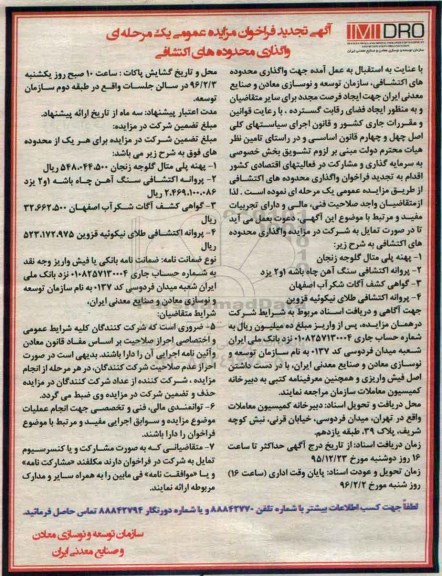 IMIDRO
آگهی تجدید فراخوان مزایده عمومی یک مرحله ای
واگذاری محدوده های اکتشافی
با عنایت به استقبال به عمل آمده جهت واگذاری محدوده
های اکتشافی، سازمان توسعه و نوسازی معادن و صنایع
معدنی ایران جهت ایجاد فرصت مجدد برای سایر متقاضیان
و به منظور ایجاد فضای رقابت گسترده ، با رعایت قوانین
و مقررات جاری کشور و قانون اجرای سیاستهای کلی
اصل چهل و چهارم قانون اساسی و در راستای تامین نظر
هیات محترم دولت مبنی بر لزوم تشویق بخش خصوصی
به سرمایه گذاری و مشارکت در فعالیتهای اقتصادی کشور
اقدام به تجدید فراخوان واگذاری محدوده های اکتشافی
از طریق مزایده عمومی یک مرحله ای نموده است . لذا
از متقاضیان واجد صلاحیت فنی، مالی و دارای تجربیات
مفید و مرتبط با موضوع این آگهی، دعوت بعمل می آید
تا در صورت تمایل به شرکت در مزایده واگذاری محدوده
های اکتشافی به شرح زیر:
۱- پهنه پلی متال گلوجه زنجان
۲- پروانه اکتشافی سنگ آهن چاه باشه ۱و۲ یزد
۳- گواهی کشف آگات شکر آب اصفهان
۴- پروانه اکتشافی طلای نیکوئیه قزوین
جهت آگاهی و دریافت اسناد مربوط به شرایط شرکت
در همان مزایده، پس از واریز مبلغ ده میلیون ریال به
شماره حساب جاری ۰۱۰۸۲۵۷۱۳۰۰۴ نزد بانک ملی ایران
شعبه میدان فردوسی کد ۱۳۷ به نام سازمان توسعه و
نوسازی معادن و صنایع معدنی ایران، با در دست داشتن
اصل فیش واریزی و همچنین معرفینامه کتبی به دبیرخانه
کمیسیون معاملات سازمان مراجعه نمایند.
محل دریافت و تحویل اسناد: دبیرخانه کمیسیون معاملات
واقع در تهران، میدان فردوسی، خیابان قرنی، نبش کوچه
شریف، پلاک ۳۹، طبقه یازدهم.
زمان دریافت اسناد: از تاریخ درج آگهی حداکثر تا ساعت
۱۶ روز دوشنبه مورخ ۹۵/۱۲/۲۳
زمان تحویل و عودت اسناد: پایان وقت اداری (ساعت ۱۶)
روز شنبه مورخ ۹۶/۲/۲
محل و تاریخ گشایش پاکات : ساعت ۱۰ صبح روز یکشنبه
۹۶/۲/۳ در سالن جلسات واقع در طبقه دوم سازمان
توسعه.
مدت اعتبار پیشنهاد: سه ماه از تاریخ ارائه پیشنهاد.
مبلغ تضمین شرکت در مزایده:
مبلغ تضمین شرکت در مزایده برای هر یک از محدوده
های فوق به شرح زیر می باشد:
۱- پهنه پلی متال گلوجه زنجان ۵۴۸،۰۴۴،۵۰۰ ریال
۲- پروانه اکتشافی سنگ آهن چاه باشه ۱و۲ یزد
۲،۴۶۹،۱۰۰،۰۸۶ ریال
۳- گواهی کشف آگات شکر آب اصفهان ۳۲،۶۶۲،۵۰۰
ریال
۴- پروانه اکتشافی طلای نیکوئیه قزوین ۵۲۳،۱۷۲،۹۷۵
ریال
نوع ضمانت نامه: ضمانت نامه بانکی یا فیش واریز وجه نقد
به شماره حساب جاری ۰۱۰۸۲۵۷۱۳۰۰۴ نزد بانک ملی
ایران شعبه میدان فردوسی کد ۱۳۷ به نام سازمان توسعه
و نوسازی معادن و صنایع معدنی ایران.
شرایط متقاضیان:
۵- ضروری است که شرکت کنندگان کلیه شرایط عمومی
و اختصاصی احراز صلاحیت بر اساس مفاد قانون معادن
و آئین نامه اجرایی آن را دارا باشند. بدیهی است در صورت
احراز عدم صلاحیت شرکت کنندگان، در هر مرحله از انجام
مزایده ، شرکت کننده از عداد شرکت کنندگان در مزایده
حذف و تضمین شرکت در مزایده وی ضبط می گردد.
۶- توانمندی مالی، فنی و تخصصی جهت انجام عملیات
موضوع مزایده و سوابق اجرایی مفید و مرتبط با موضوع
فراخوان را دارا باشند.
۷- متقاضیانی که به صورت مشارکت و یا کنسرسیوم
تمایل به شرکت در فراخوان دارند مکلفند «مشارکت نامه»
و یا «موافقت نامه» فی مابین را به همراه سایر و مدارک
مربوطه ارائه نمایند.
لطفاً جهت کسب اطلاعات بیشتر با شماره تلفن ۸۸۸۴۲۷۷۰ و یا شماره دورنگار ۸۸۸۴۲۷۹۴ تماس حاصل فرمائید.
سازمان توسعه و نوسازی معادن
و صنایع معدنی ایران